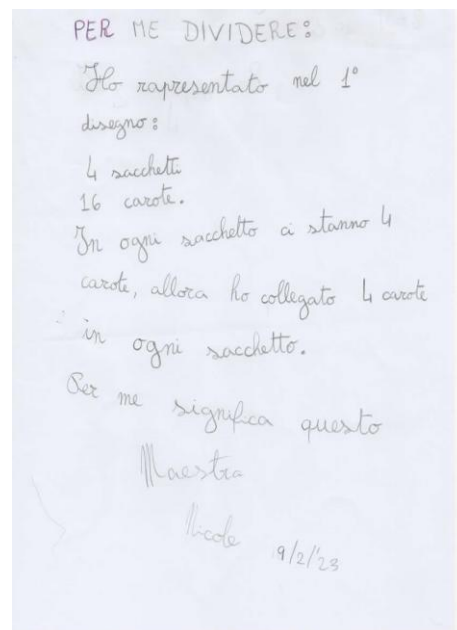 PER ME DIVIDERE:
Ho rapresentato nel 1°
disegno:
4 sacchetti
16 carote.
In ogni sacchetto ci stanno 4
carote, allora ho collegato 4 carote
in ogni sacchetto.
Per me significa questo
Maestra
Nicole 9/2/'23